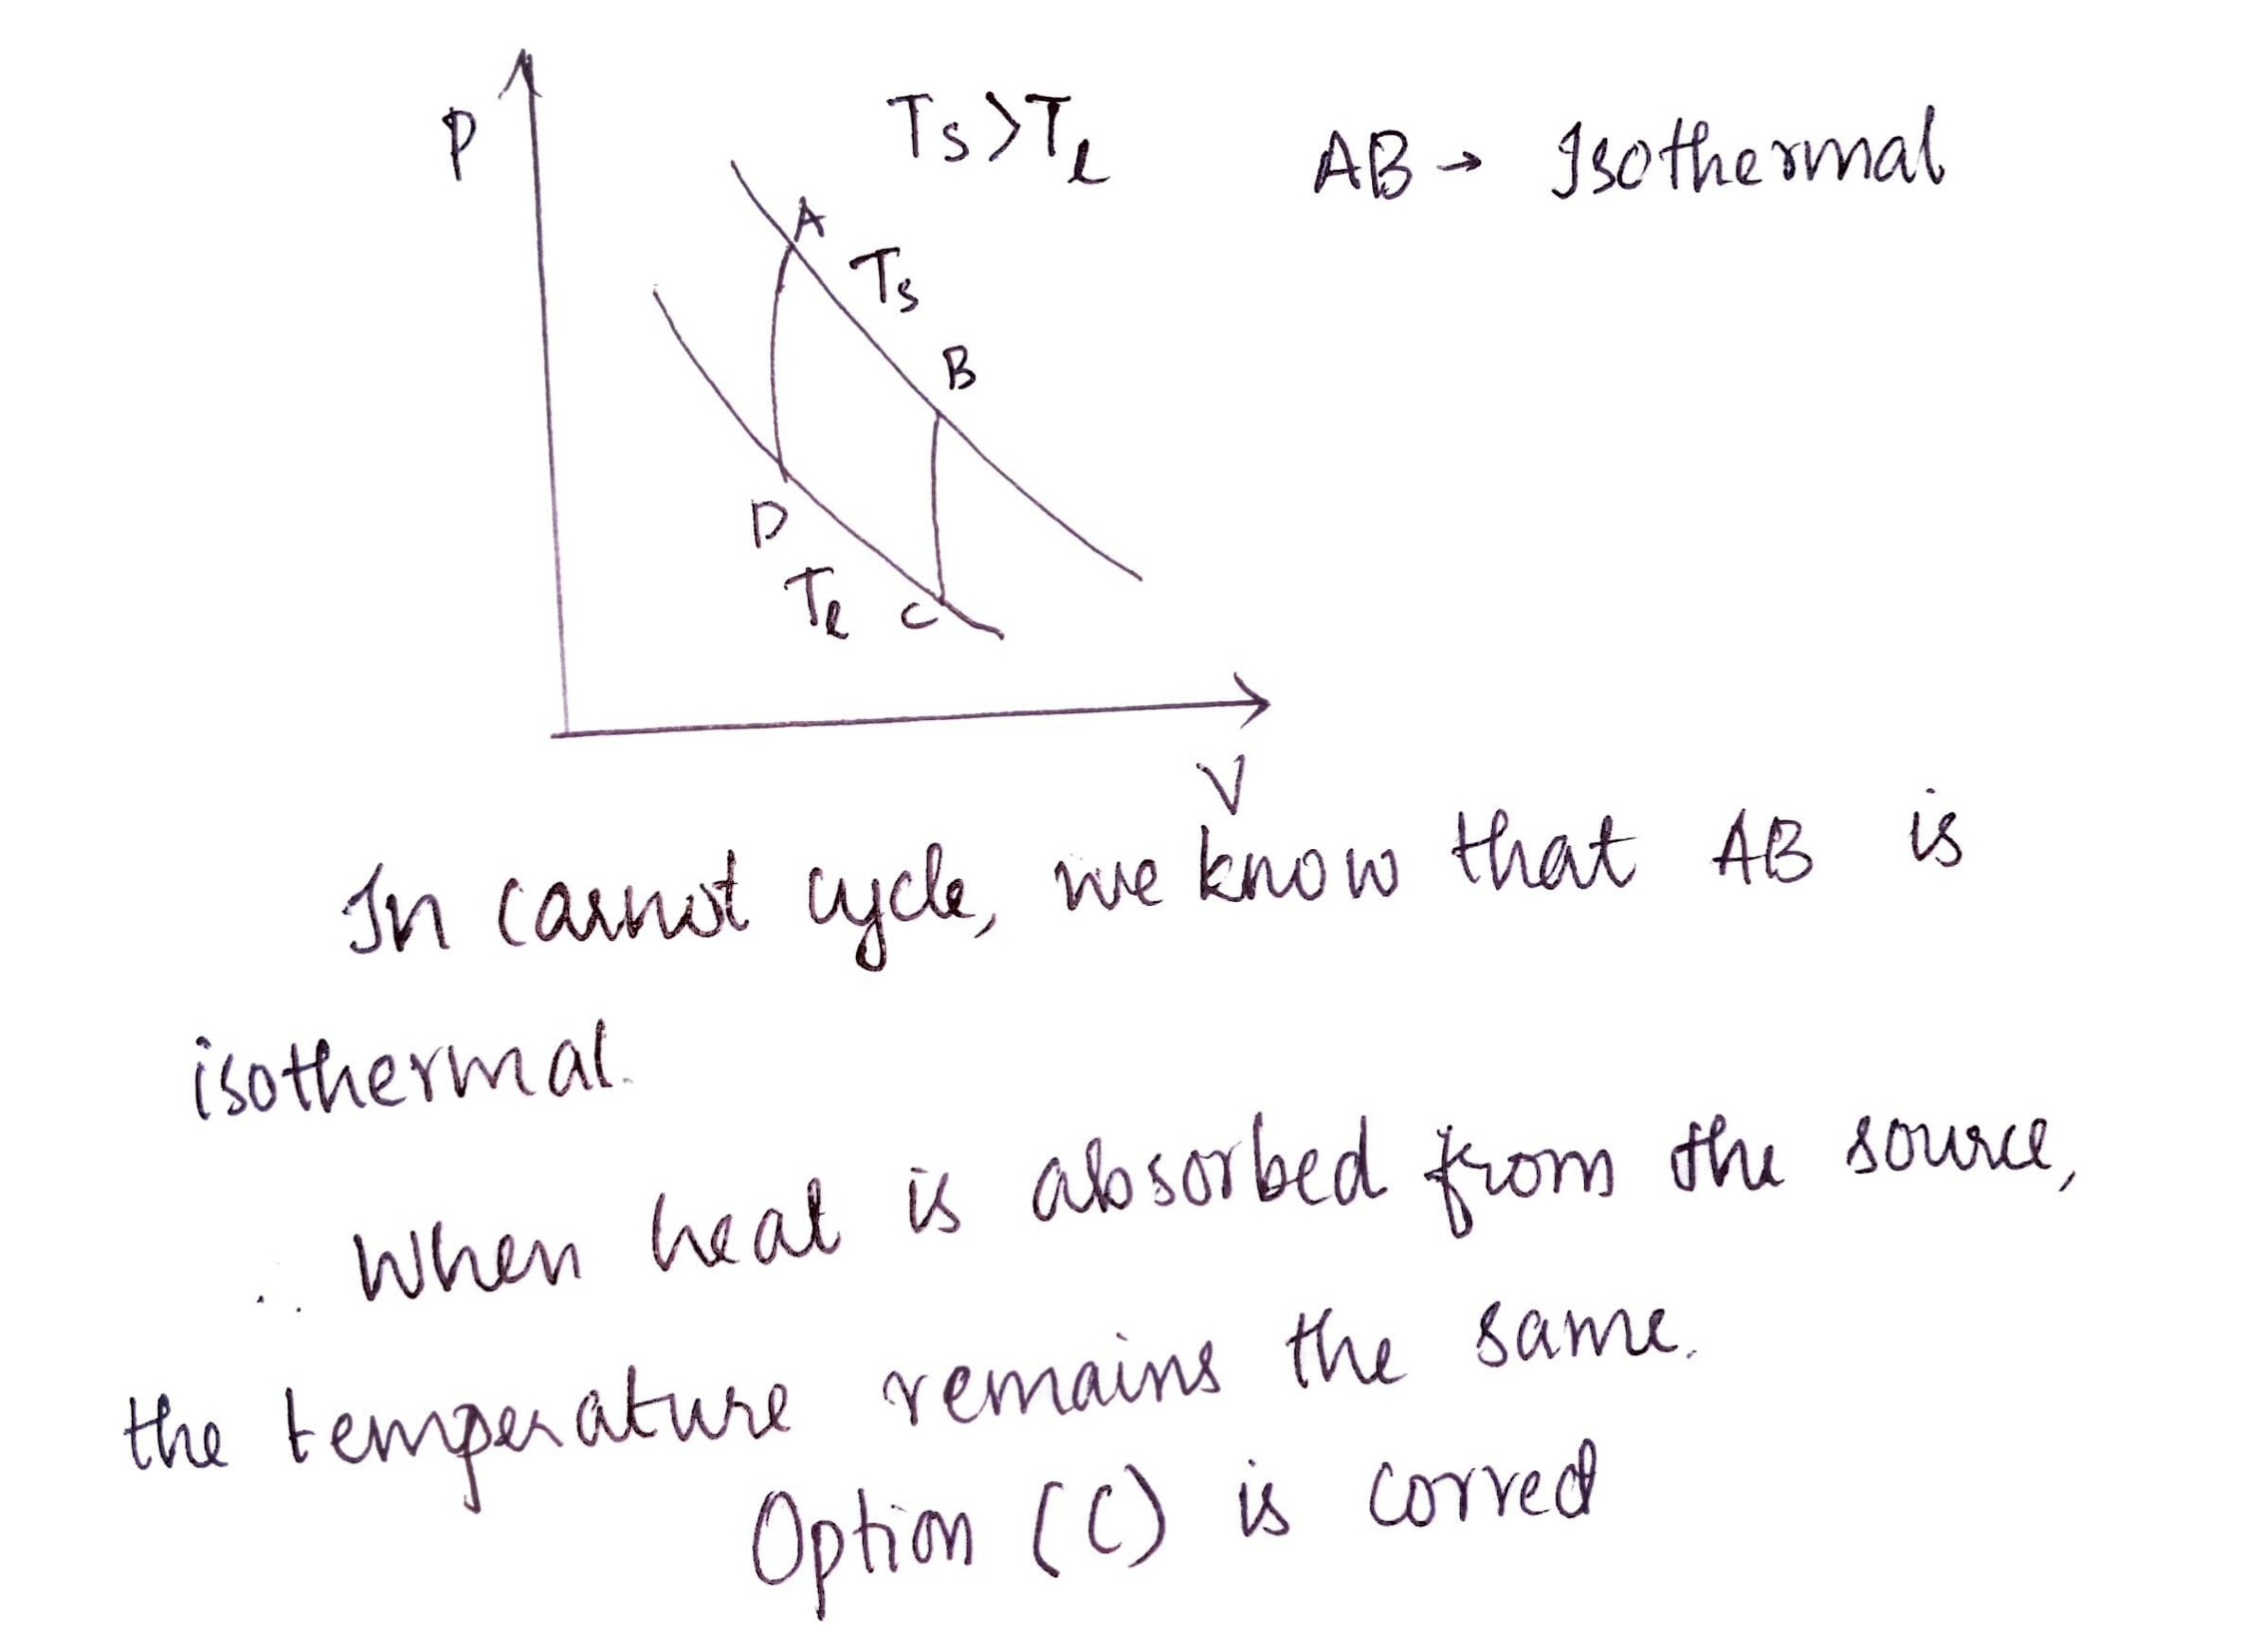 P
Ts > Tl
AB → Isothermal
A
Ts
B
D
Tl
C
V
In carnot cycle, we know that AB is
isothermal.
∴ When heat is absorbed from the source,
the temperature remains the same.
Option (C) is correct